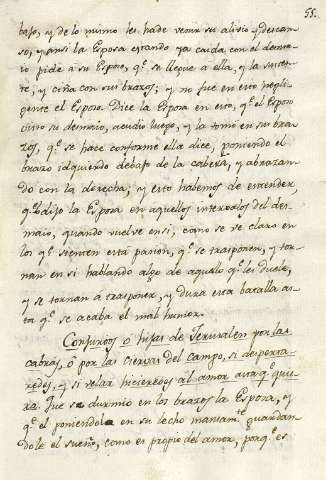 55.
baxo, y de lo mismo les hade venir su alivio y descans
so, y ansi la Esposa estando ya caida con el desma
io pide a su Esposo, q.e se llegue a ella, y la susten
te, y ciña con sus brazos; y no fue en esto negli
gente el Esposo. Dice la Esposa en esto, q.e el Esposo
vino si desmaio, acudio luego, y la tomó en sus bra
zos, q.e se hace conforme ella dice, poniendo el
brazo idquierdo debajo de la cabeza, y abrazan
do con la derecha; y esto habemos de entender,
q.e lo dijo la Esposa en aquellos intervalos del des
maio, quando vuelve en si, como se ve claro en
los q.e sienten esta pasion, q.e se trasponen, y tor
nan en si hablando algo de aquello q.e les duele,
y se tornan a trasponer, y dura esta batalla as
ta q.e se acaba el mal humor.
Conjuroos ó hijas de Jerusalen por las
cabras, ó por las ciervas del campo, si desperta
redes, y si velar hicieredes al amor asta q.e quie
ra. Que se durmio en los brazos la Esposa, y
q.e el poniendola en su lecho mansam.te guardan
dole el sueño, como es propio del amor, porq.e es